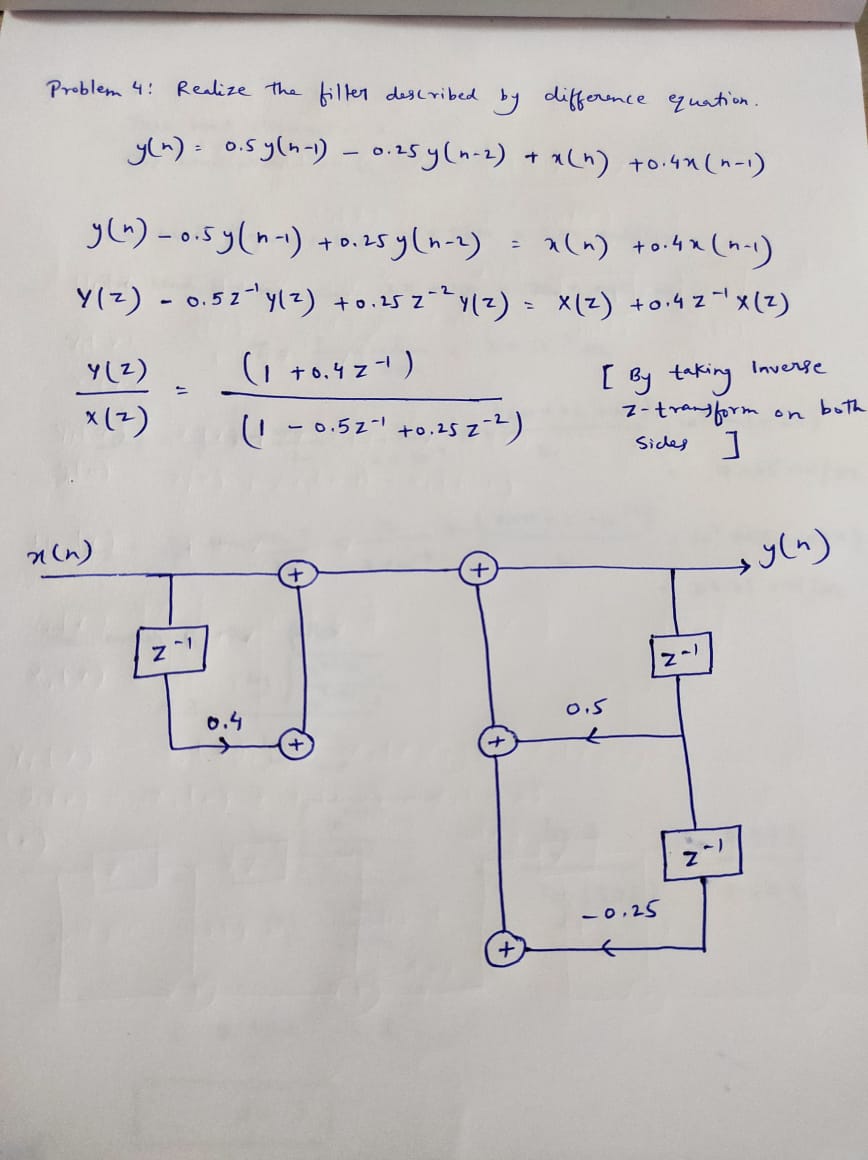 Problem 4: Realize the filter described by difference equation.
y(n) = 0.5y(n-1) - 0.25y(n-2) + x(n) +0.4x(n-1)
y(n) - 0.5y(n-1) +0.25y(n-2) = x(n) +0.4x(n-1)
Y(z) - 0.5z⁻¹Y(z) +0.25z⁻²Y(z) = X(z) +0.4z⁻¹X(z)
Y(z) / X(z) = (1 +0.4z⁻¹) / (1 - 0.5z⁻¹ +0.25z⁻²)
[By taking Inverse
z-transform on both
sides]
x(n)
+
+
y(n)
z⁻¹
z⁻¹
0.4
+
+
0.5
z⁻¹
-0.25
+